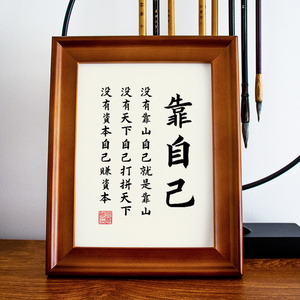 靠自己
没有靠山自己就是靠山
没有天下自己打拼天下
没有資本自己赚資本